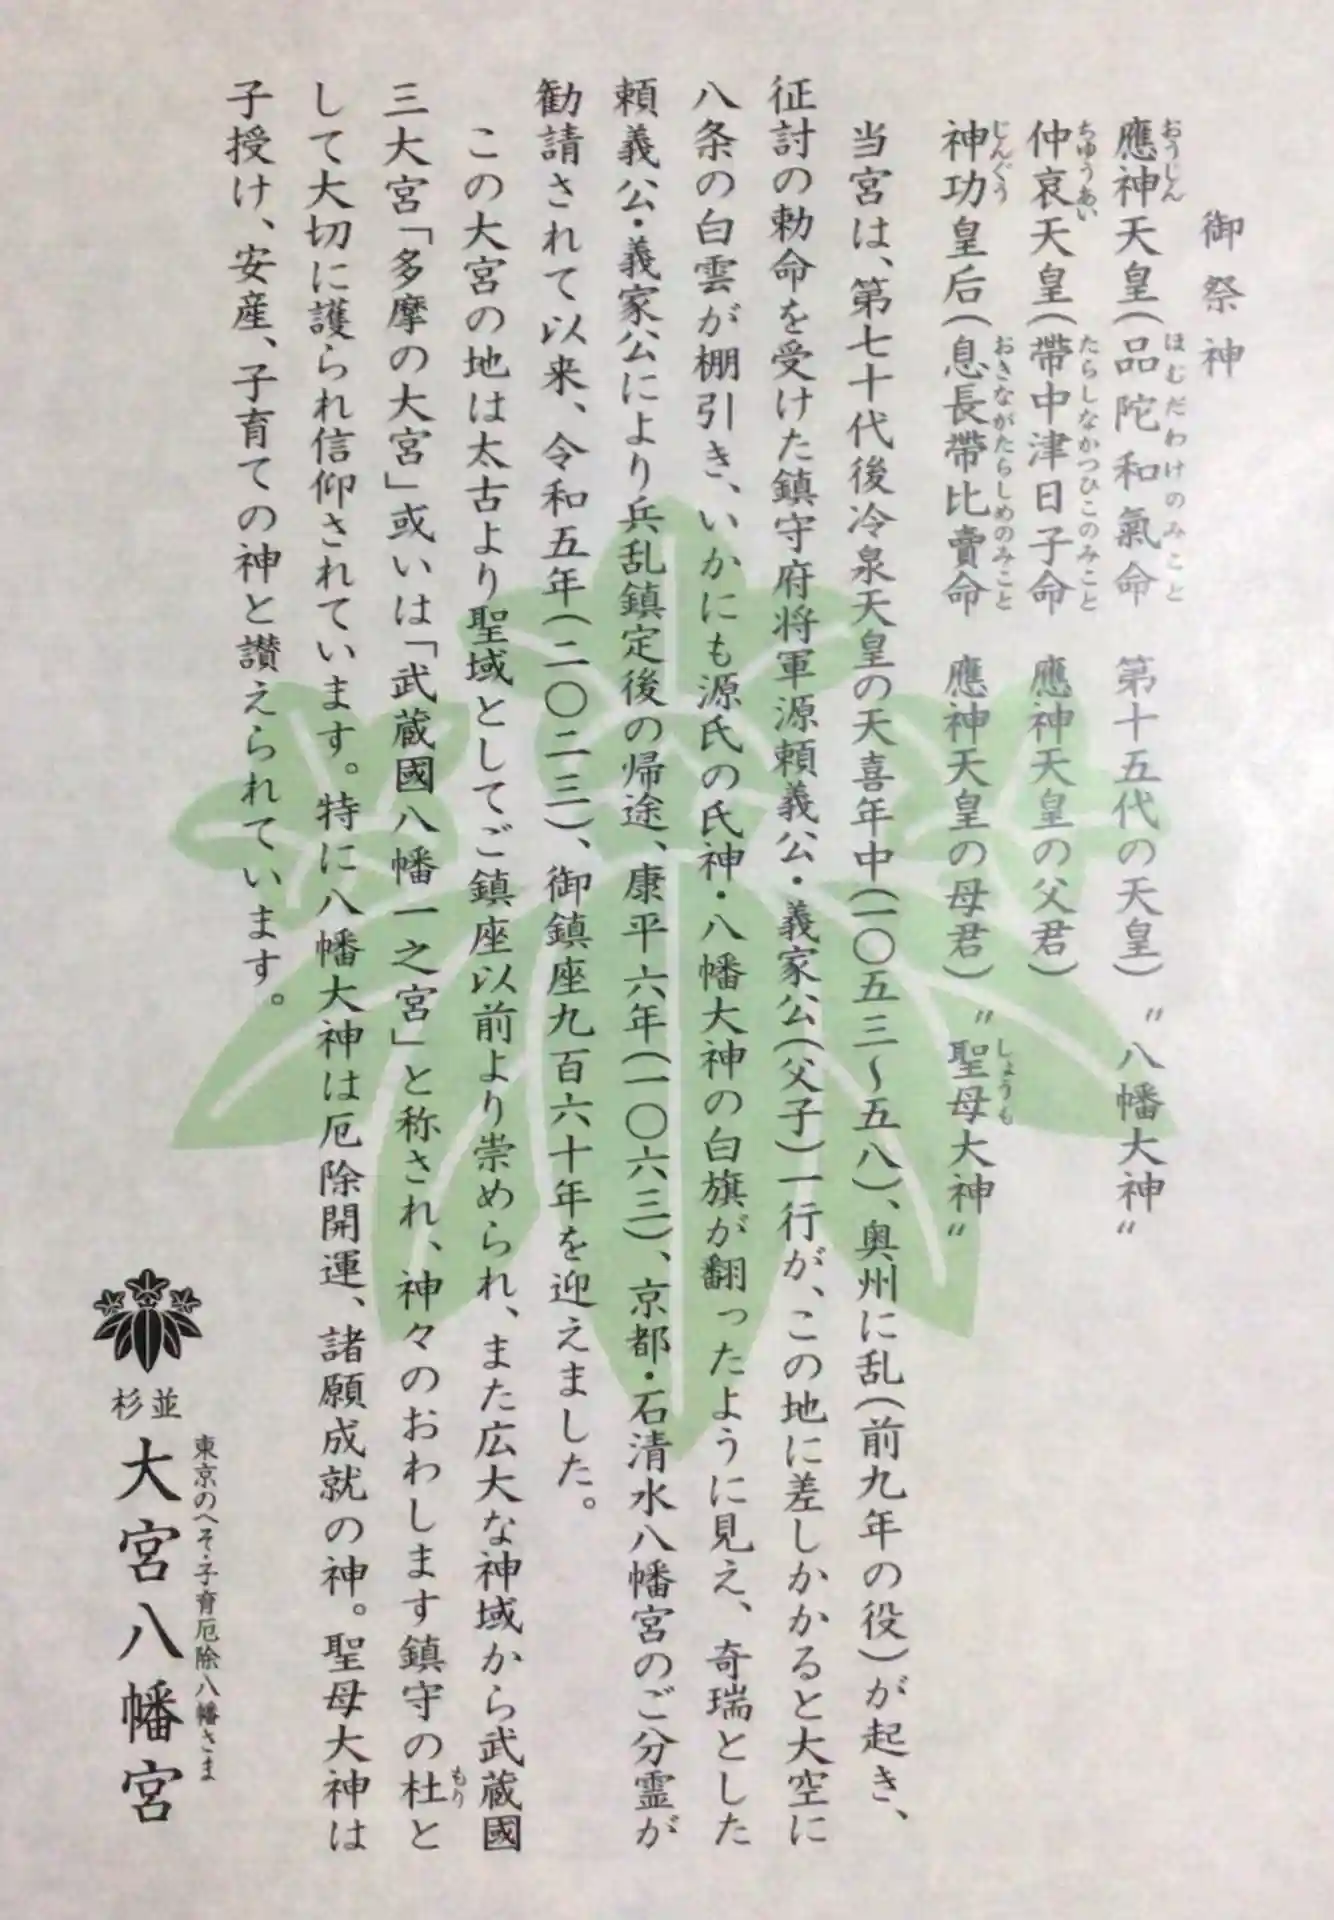 御祭神
應神天皇（品陀和氣命　第十五代の天皇）〝八幡大神〟
おうじん　ほむだわけのみこと
仲哀天皇（帶中津日子命　應神天皇の父君）
ちゆうあい　たらしなかつひこのみこと
神功皇后（息長帶比賣命　應神天皇の母君）〝聖母大神〟
じんぐう　おきながたらしめのみこと　しょうも
当宮は、第七十代後冷泉天皇の天喜年中（一〇五三～五八）、奥州に乱（前九年の役）が起き、
征討の勅命を受けた鎮守府将軍源頼義公・義家公（父子）一行が、この地に差しかかると大空に
八条の白雲が棚引き、いかにも源氏の氏神・八幡大神の白旗が翻ったように見え、奇瑞とした
頼義公・義家公により兵乱鎮定後の帰途、康平六年（一〇六三）、京都・石清水八幡宮のご分霊が
勧請されて以来、令和五年（二〇二三）、御鎮座九百六十年を迎えました。
この大宮の地は太古より聖域としてご鎮座以前より崇められ、また広大な神域から武蔵國
三大宮「多摩の大宮」或いは「武蔵國八幡一之宮」と称され、神々のおわします鎮守の杜と
もり
して大切に護られ信仰されています。特に八幡大神は厄除開運、諸願成就の神。聖母大神は
子授け、安産、子育ての神と讃えられています。
東京のへそ・子育厄除八幡さま
杉並
大宮八幡宮